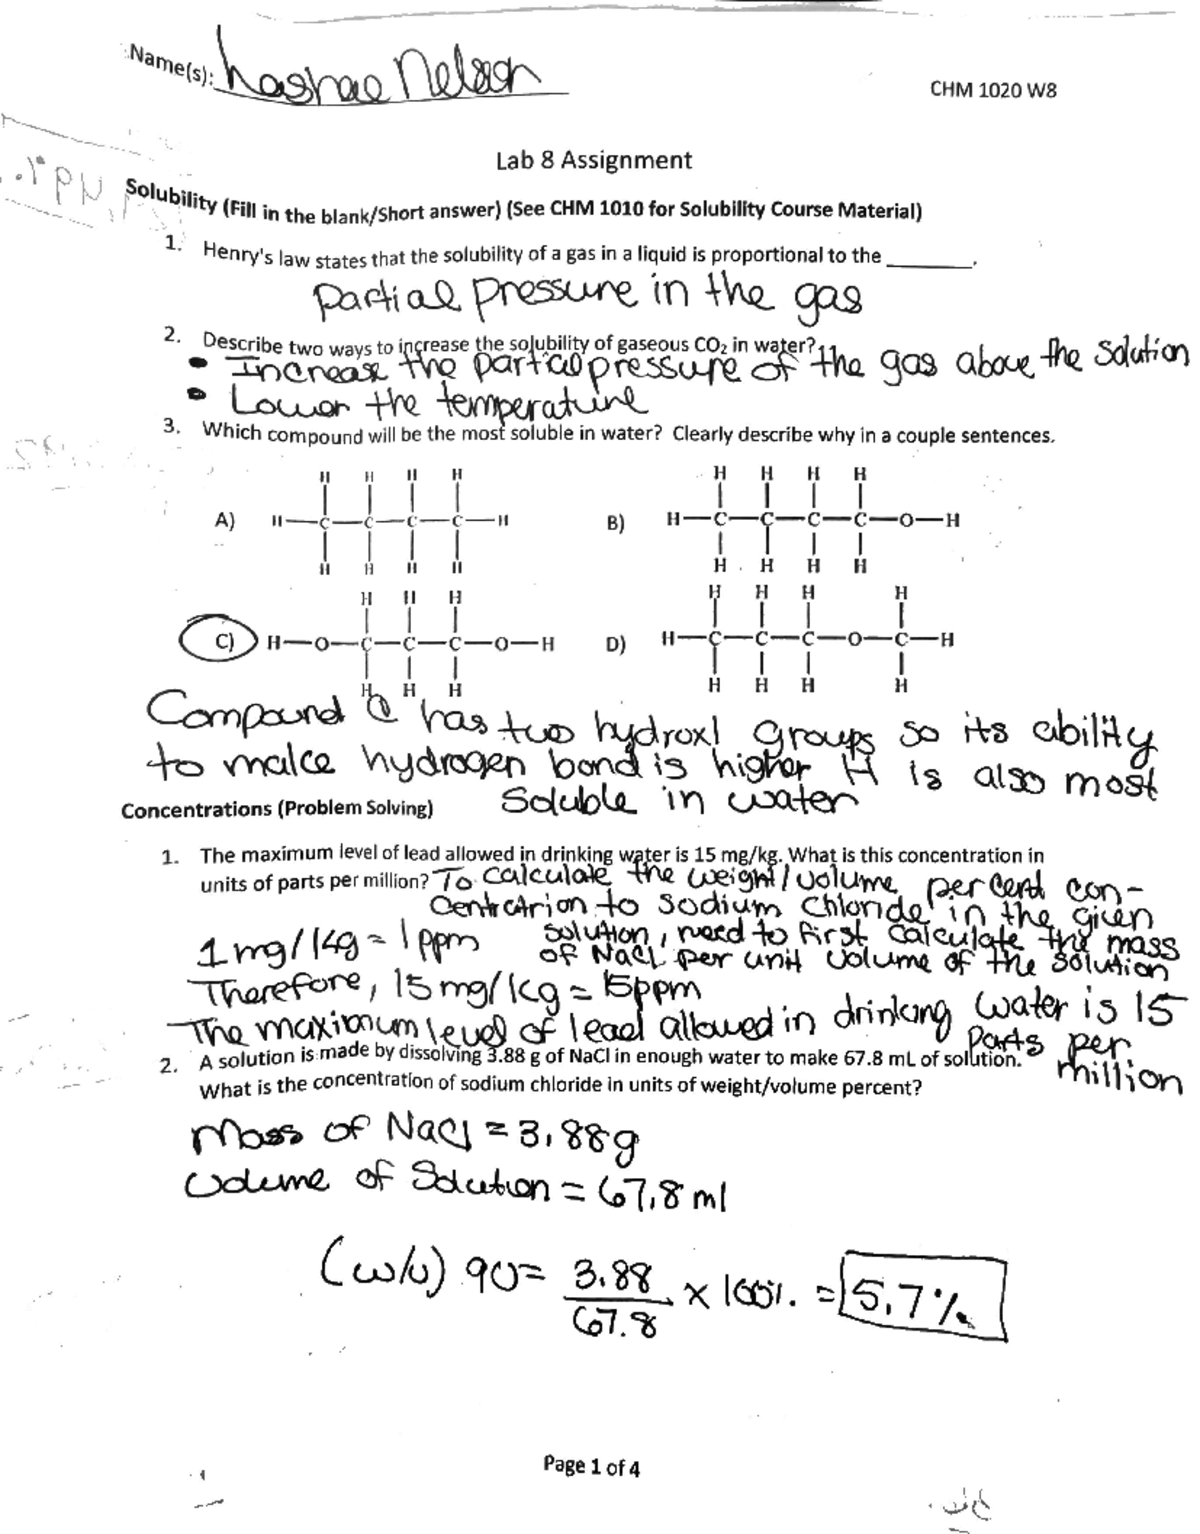 Name(s): Lashae Nelson
CHM 1020 W8
Lab 8 Assignment
Solubility (Fill in the blank/Short answer) (See CHM 1010 for Solubility Course Material)
1. Henry's law states that the solubility of a gas in a liquid is proportional to the ______.
Partial pressure in the gas
2. Describe two ways to increase the solubility of gaseous CO₂ in water?
• Increase the partial pressure of the gas above the solution
• Lower the temperature
3. Which compound will be the most soluble in water? Clearly describe why in a couple sentences.
H H H H
A) H—C—C—C—C—H
H H H H
H H H H
B) H—C—C—C—C—O—H
H H H H
H H H
C) H—O—C—C—C—O—H
H H H
H H H H
D) H—C—C—C—O—C—H
H H H H
Compound C has two hydroxl groups so its ability
to make hydrogen bond is higher It is also most
Soluble in water
Concentrations (Problem Solving)
1. The maximum level of lead allowed in drinking water is 15 mg/kg. What is this concentration in
units of parts per million?
To calculate the weight/volume percent con-
centratrion to sodium chloride in the given
solution, need to first calculate the mass
of NaCl per unit volume of the solution
1 mg/kg = 1 ppm
Therefore, 15 mg/kg = 15ppm
The maximum level of lead allowed in drinking water is 15
parts per
million
2. A solution is made by dissolving 3.88 g of NaCl in enough water to make 67.8 mL of solution.
What is the concentration of sodium chloride in units of weight/volume percent?
Mass of NaCl = 3.88g
Volume of Solution = 67.8 ml
(w/v) % = 3.88/67.8 x 100%. = 5.7%
Page 1 of 4